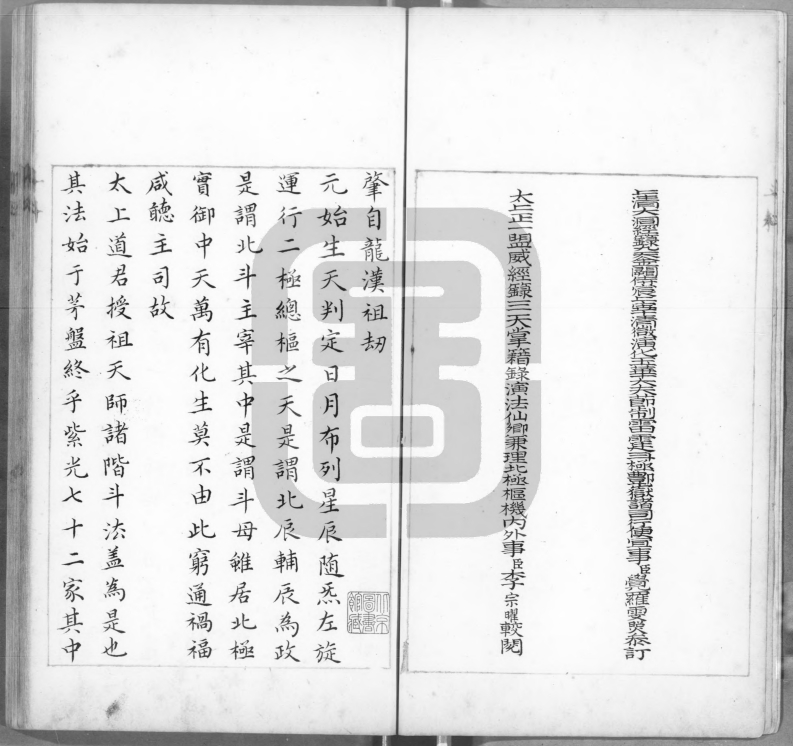 上清大洞經籙九天金闕侍宸上東華清微演化玉華大夫天師制雷霆斗極酆嶽諸司行便宜事臣覺羅雲真叅訂
太上正一盟威經籙三天掌籍錄演法仙卿兼理北極樞機內外事臣李宗曜較閱
肇自龍漢祖劫
元始生天判定日月布列星辰随炁左旋
運行二極總樞之天是謂北辰輔辰為政
是謂北斗主宰其中是謂斗母雖居北極
實御中天萬有化生莫不由此窮通禍福
咸聽主司故
太上道君授祖天師諸階斗法盖為是也
其法始于茅盤終乎紫光七十二家其中